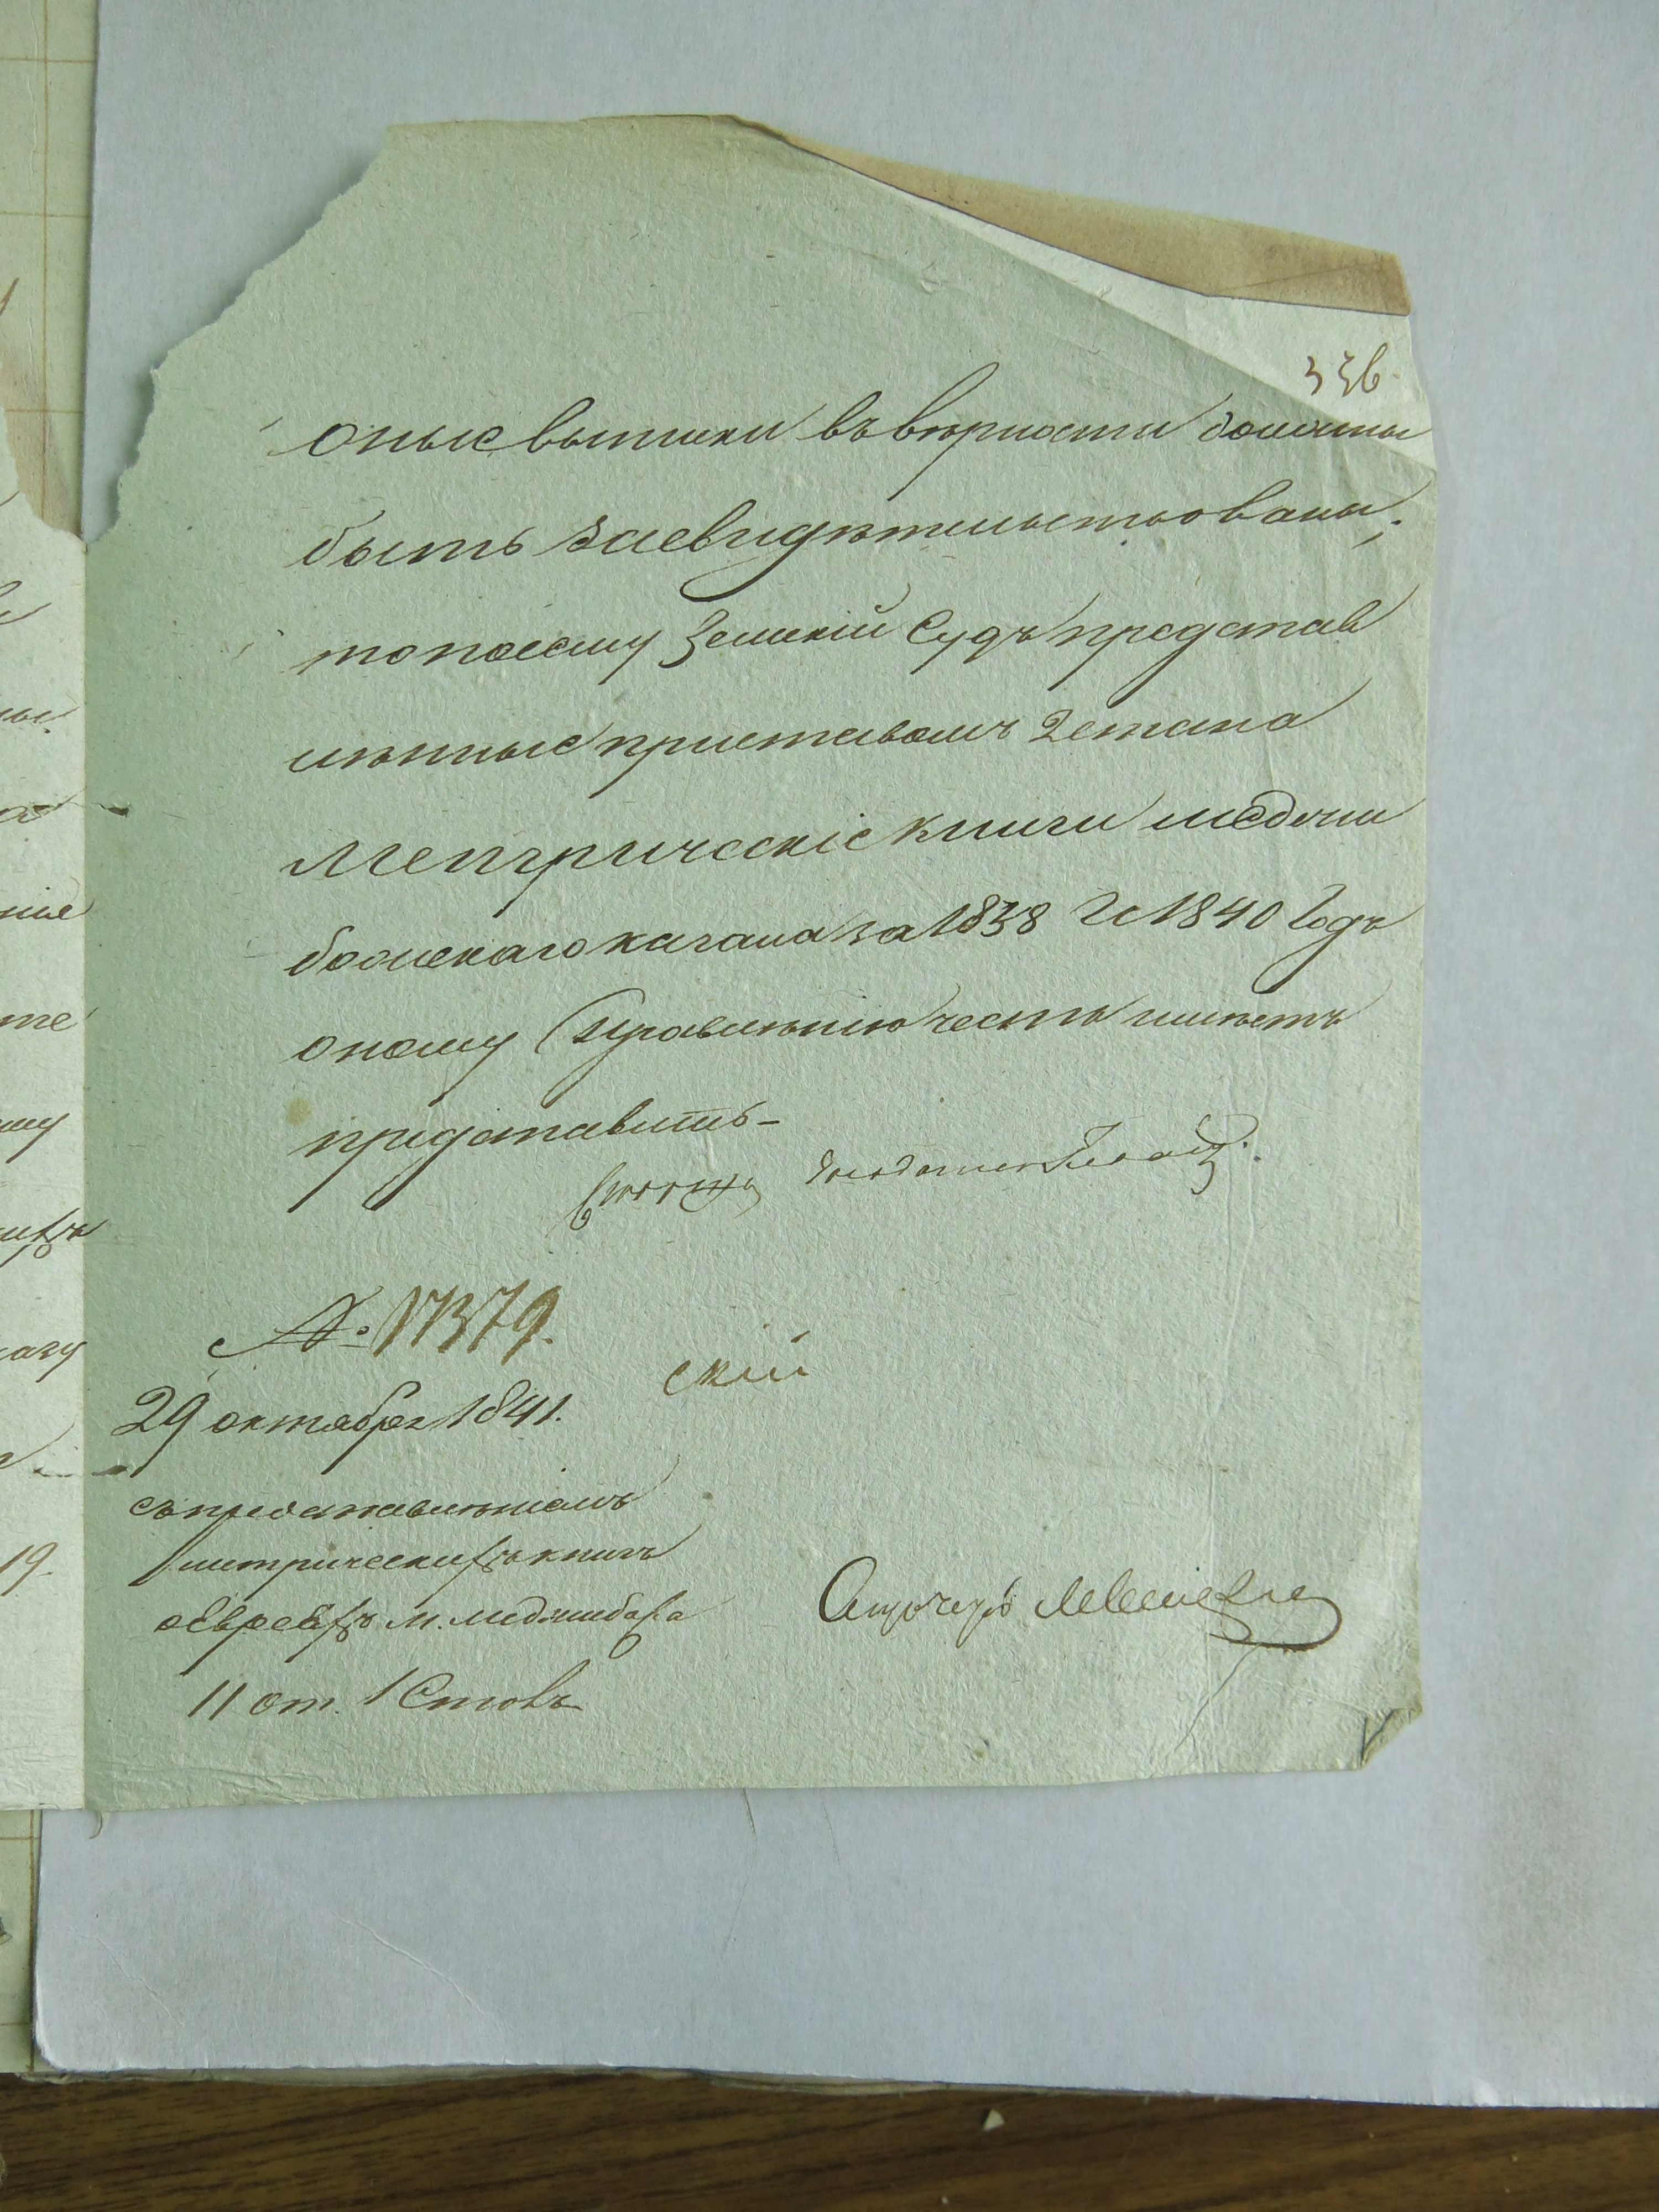 336.
оные выписки въ верности должны
быть засвидѣтельствованы;
то посему Земскій Судъ представ
лѣнные приставомъ 2 стана
метрическіе книги меджи
божскаго кагала за 1838 и 1840 годъ
оному Правленію честь имѣетъ
представить
№ 17379.
скій
29 октября 1841.
съ представлѣніемъ
метрическихъ книгъ
о евреяхъ м. меджибожа
11 от. 1 Столъ